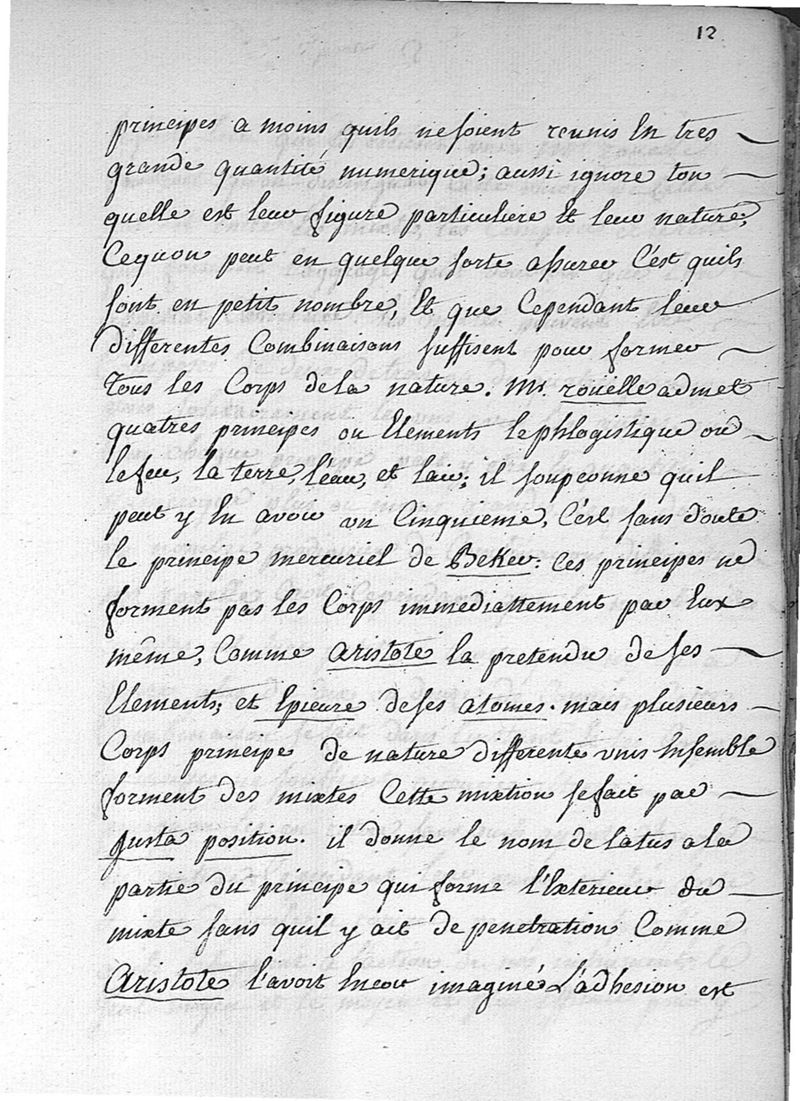 12
principes a moins quils ne soient reunis En tres
grande quantité numerique; aussi ignore ton
quelle est leur figure particuliere Et leur nature,
Cequon peut en quelque sorte assurer C'est quils
sont en petit nombre, Et que Cependant leur
differentes Combinaisons suffisent pour former
Tous les Corps dela nature. Mr. rouëlle admet
quatres principes ou Elements le phlogistique ou
le feu, la terre, l'eau, et lair; il soupçonne quil
peut y En avoir un Cinquieme, C'est sans doute
le principe mercuriel de Beker: Ces principes ne
forment pas les Corps immediattement par Eux
même, Comme Aristote la pretendu de ses
Elements; et Epicure deses atomes. mais plusieurs
Corps principe de nature differente unis Ensemble
forment des mixtes Cette mixtion se fait par
Justa position. il donne le nom de latus a la
partie du principe qui forme l'Exterieur du
mixte sans quil y ait de penetration Comme
Aristote l'avoit Encor imaginé L'adhesion est